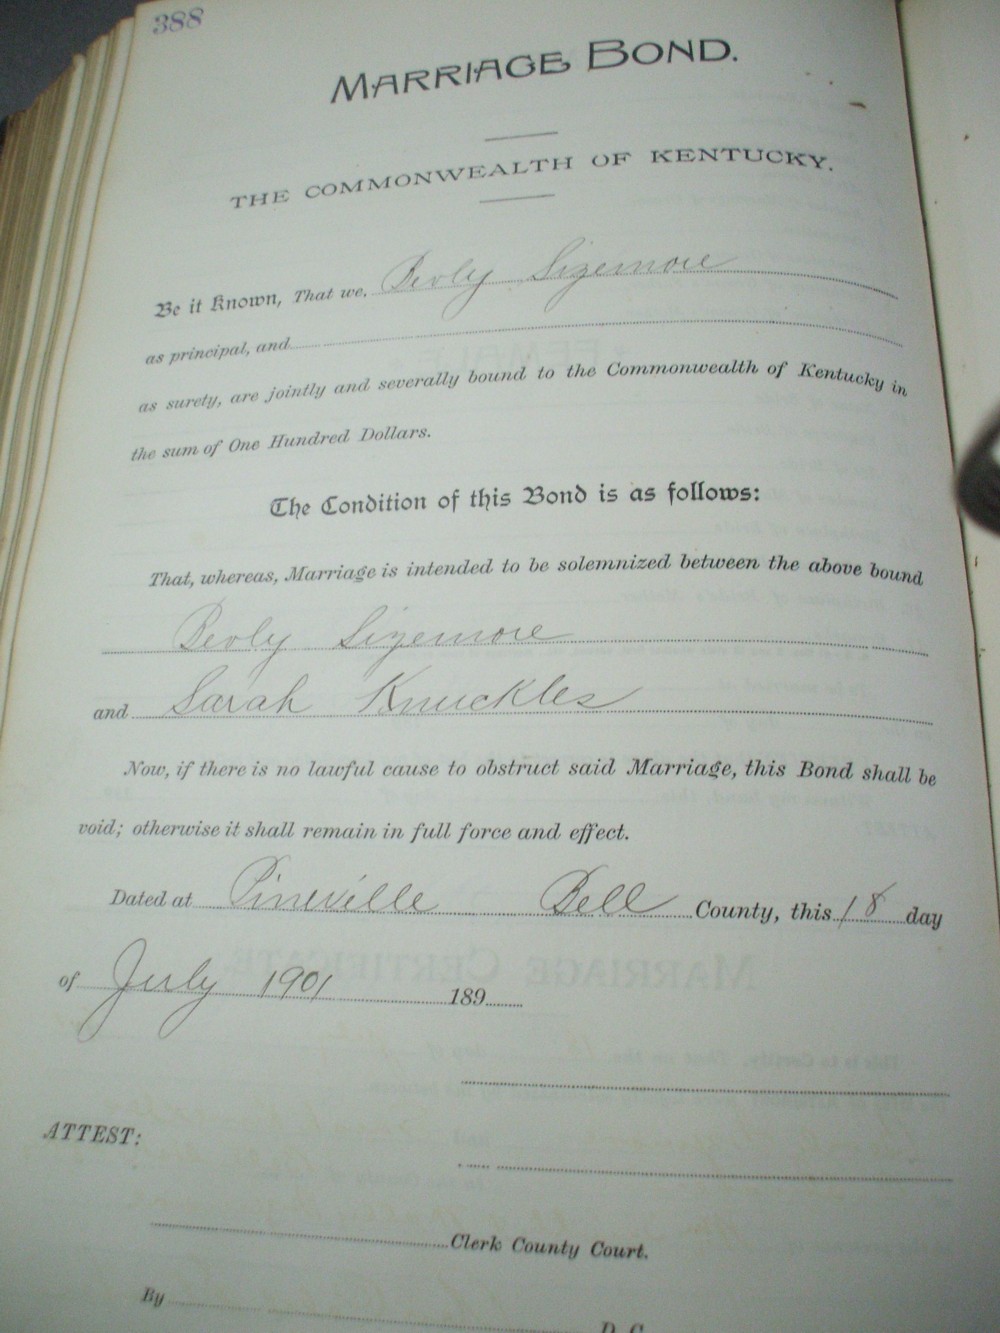 388
MARRIAGE BOND.
THE COMMONWEALTH OF KENTUCKY.
Be it Known, That we, Berly Sizemore
as principal, and
as surety, are jointly and severally bound to the Commonwealth of Kentucky in
the sum of One Hundred Dollars.
The Condition of this Bond is as follows:
That, whereas, Marriage is intended to be solemnized between the above bound
Berly Sizemore
and Sarah Knuckles
Now, if there is no lawful cause to obstruct said Marriage, this Bond shall be
void; otherwise it shall remain in full force and effect.
Dated at Pineville Bell County, this 18 day
of July 1901 189
ATTEST:
Clerk County Court.
By D. C.